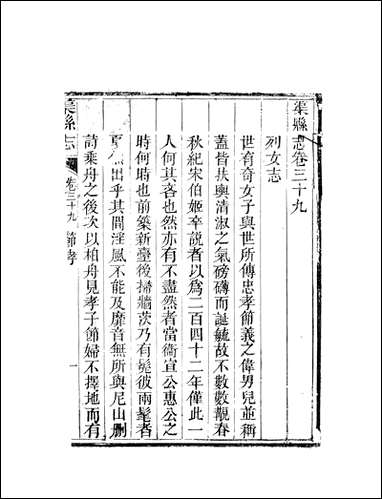 渠縣志卷三十九
列女志
世有奇女子與世所傳忠孝節義之偉男兒並稱
蓋皆扶輿清淑之氣磅礴而誕毓故不數數覯春
秋紀宋伯姬卒說者以爲二百四十二年僅此一
人何其吝也然亦有不盡然者當衞宣公惠公之
時何時也前築新臺後掃牆茨乃有髧彼兩髦者
出乎其間淫風不能及靡音無所與尼山刪
詩乘舟之後次以柏舟見孝子節婦不擇地而有
渠縣志
卷三十九
節孝
一